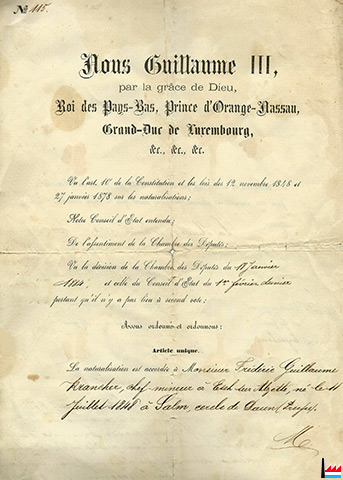 № 115.
Nous Guillaume III,
par la grâce de Dieu,
Roi des Pays-Bas, Prince d'Orange-Nassau,
Grand-Duc de Luxembourg,
&c., &c., &c.
Vu l'art. 10 de la Constitution et les lois des 12 novembre 1848 et
27 janvier 1878 sur les naturalisations;
Notre Conseil d'Etat entendu;
De l'assentiment de la Chambre des Députés;
Vu la décision de la Chambre des Députés du 18 janvier
1884, et celle du Conseil d'Etat du 1er février dernier
portant qu'il n'y a pas lieu à second vote;
Avons ordonné et ordonnons:
Article unique.
La naturalisation est accordée à Monsieur Frédéric Guillaume
chef-mineur à Esch-sur-Alzette, né le 11
Juillet 1848 à Salm, cercle de Daun (Prusse).